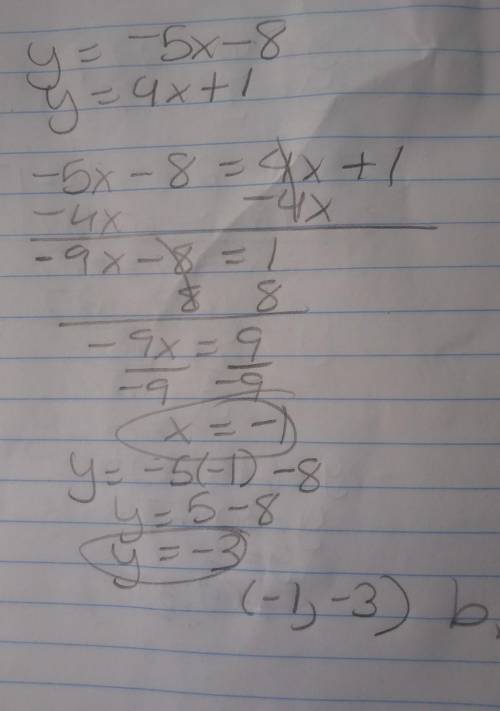 y = -5x - 8
y = 4x + 1
-5x - 8 = 4x + 1
-4x -4x
-9x - 8 = 1
8 8
-9x = 9
-9 -9
x = -1
y = -5(-1) - 8
y = 5 - 8
y = -3
(-1, -3) b.